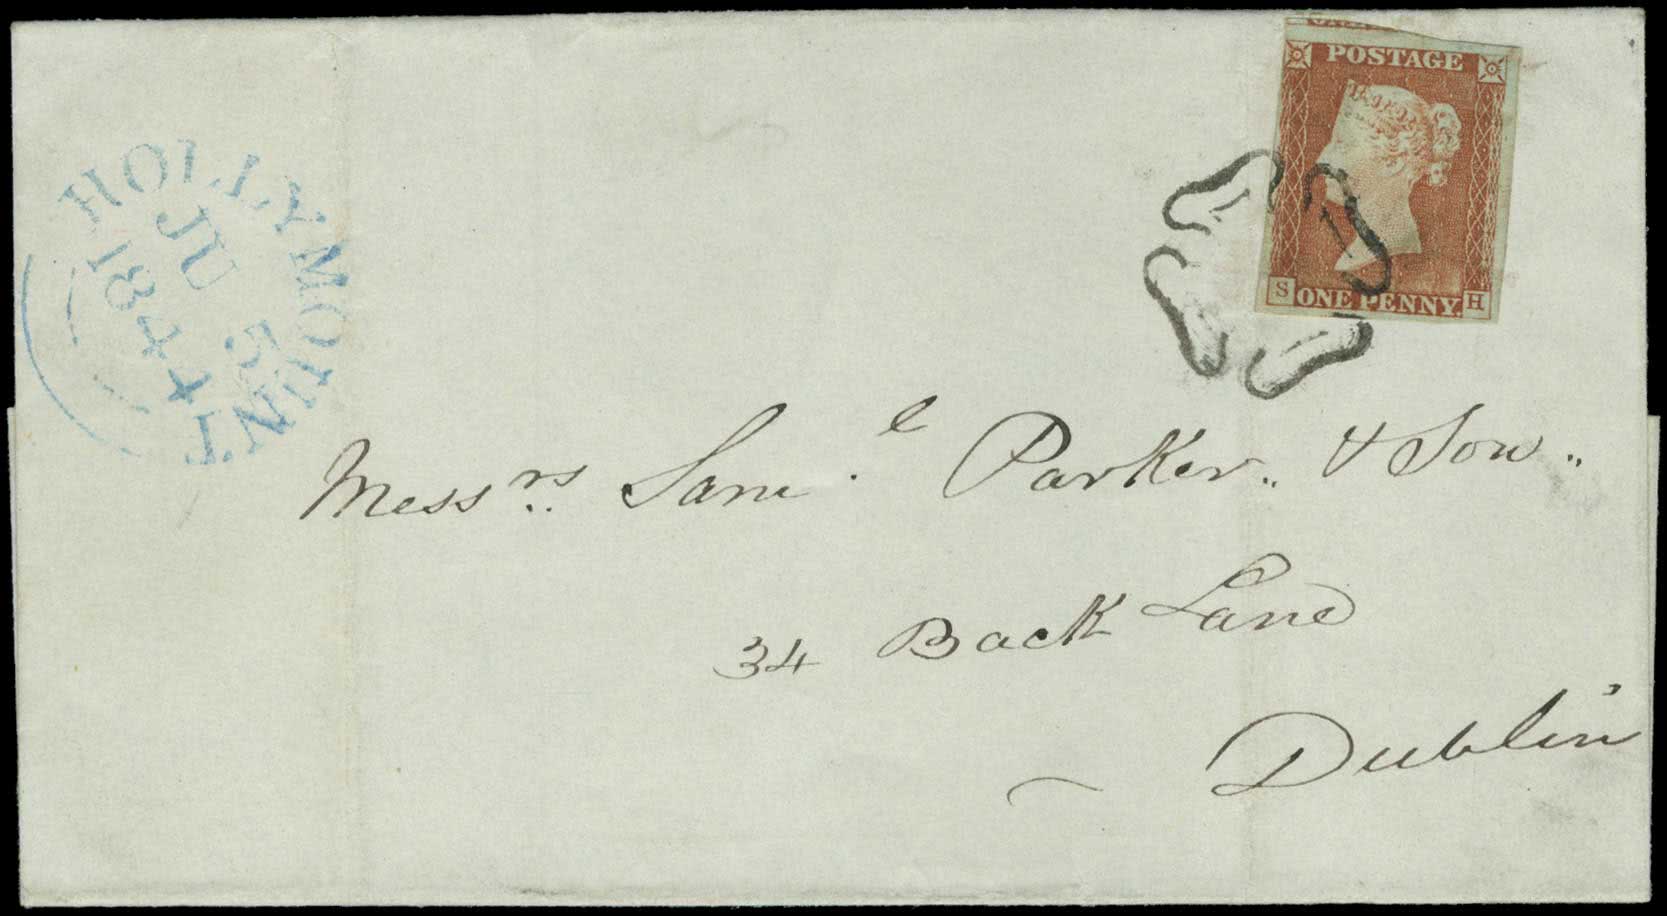 HOLLYMOUNT
JU 5
184
POSTAGE
S ONE PENNY. H
Messrs. Saml. Parker & Son
34 Back Lane
Dublin